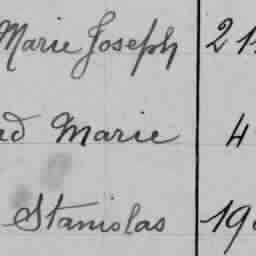 Marie Joseph 2
Marie 4
Stanislas 19